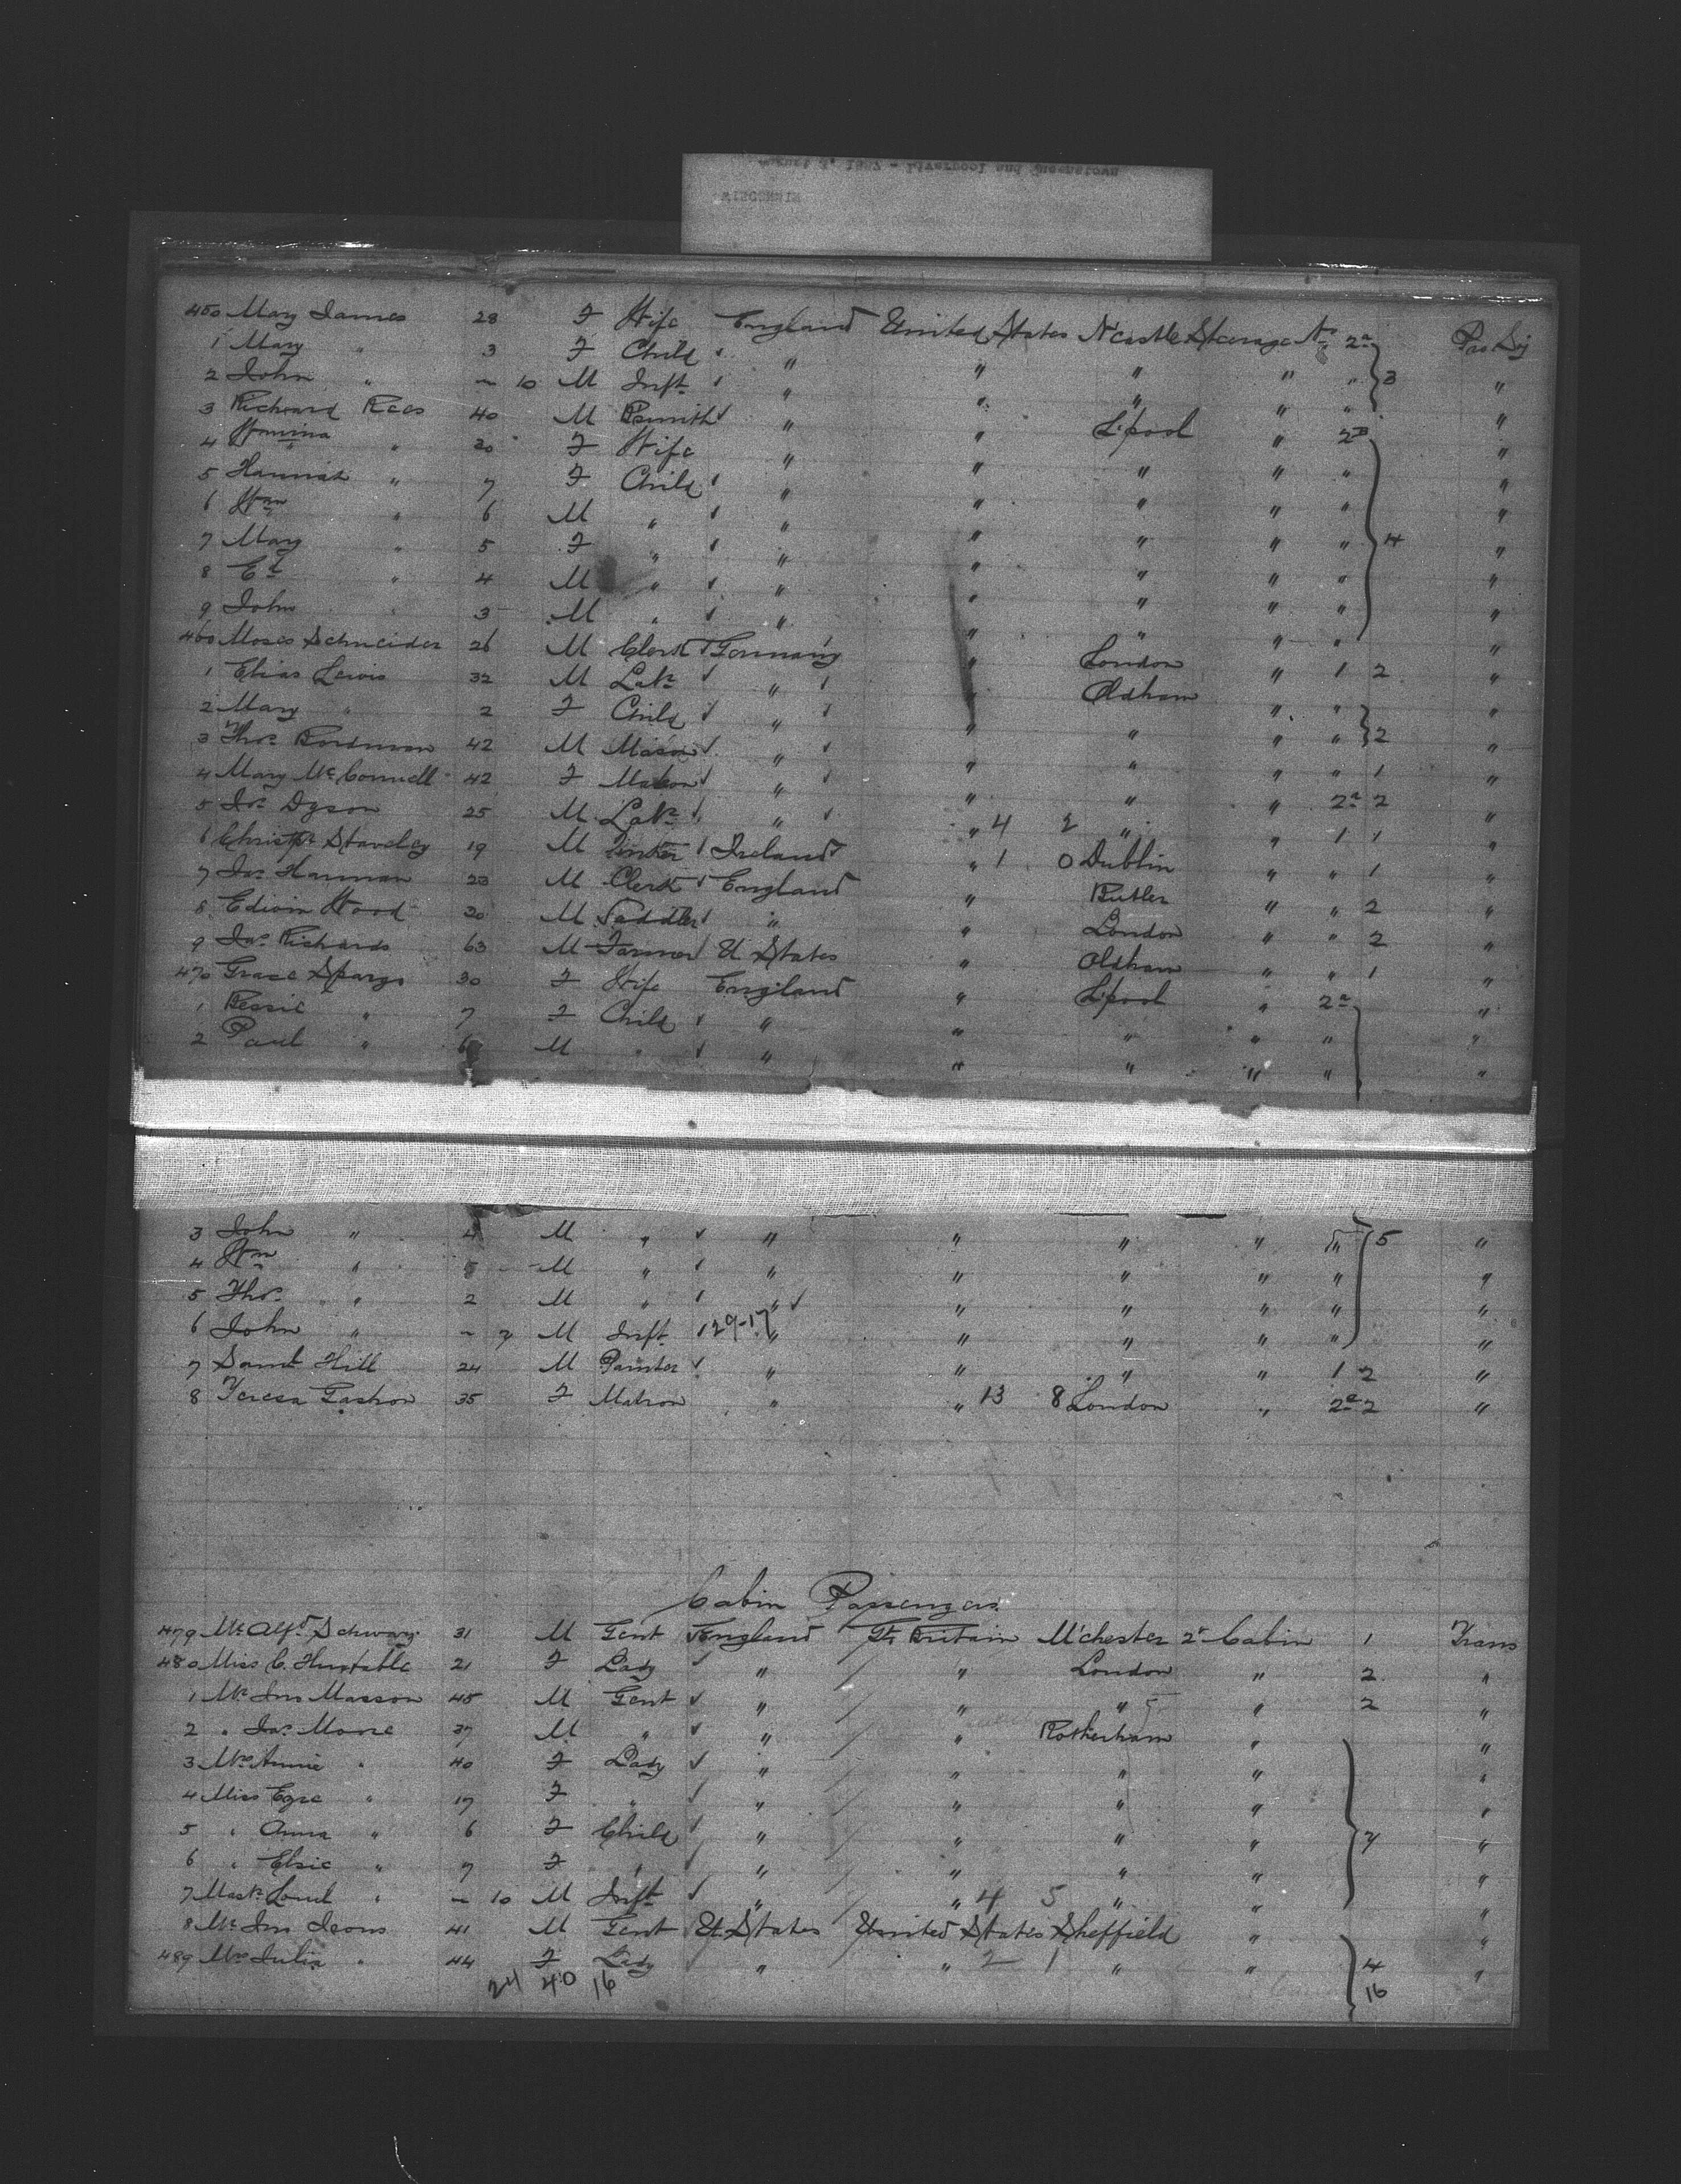 450 Mary James 28 F Wife England United States N'castle Steerage 2a Pas Dg
1 Mary " 3 F Child " " " " " 3 "
2 John " ~ 10 M Inft " " " " " "
3 Richard Rees 40 M B.smith " " L'pool " 2B "
4 " 20 F Wife " " " " " "
5 Hannah " 7 F Child " " " " " "
6 Wm " 6 M " " " " " " "
7 Mary " 5 F " " " " " " 4 "
8 Ed " 4 M " " " " " " "
9 John " 3 M " " " " " " "
460 Moses Schneider 26 M Clerk Germany " London " 1 2 "
1 Elias Lewis 32 M Labr " " Oldham " " "
2 Mary " 2 F Child " " " " " 2 "
3 Thos Bordman 42 M Mason " " " " " 1 "
4 Mary McConnell 42 F Matron " " " " 2a 2 "
5 Jos Dyson 25 M Labr " " 4 2 " " 1 1 "
6 Christr Staveley 19 M Ireland " 1 0 Dublin " " 1 "
7 Jas Harman 23 M Clerk England " Butler " " 2 "
8 Edwin Wood 20 M Saddler " " London " " 2 "
9 Jas Richards 63 M Farmer U States " Oldham " " 1 "
470 Grace Spargo 30 F Wife England " L'pool " 2a "
1 Bessie " 7 F Child " " " " " "
2 Paul " 6 M " " " " " " "
3 John " 4 M " " " " " " 5 "
4 Wm " 5 M " " " " " " "
5 Thos " 2 M " " " " " " "
6 John " ~ 7 M Inft 129-17 " " " " " "
7 Saml Hill 24 M Painter " " " " 1 2 "
8 Teresa Gashon 35 F Matron " " 13 8 London " 2a 2 "
Cabin Passengers
479 Mr Alfd Schwarz 31 M Gent England Gt Britain M'chester 2d Cabin 1 Trans
480 Miss C. Huxtable 21 F Lady " " London " 2 "
1 Mr Jno Masson 45 M Gent " " " 5 " 2 "
2 " Jas Moore 37 M " " " Rotherham " "
3 Mrs Annie " 40 F Lady " " " " "
4 Miss " 17 F " " " " " "
5 " Anna " 6 F Child " " " " 7 "
6 " Elsie " 7 F " " " " " "
7 Mastr " ~ 10 M Inft " " 4 5 " " "
8 Mr Jno Irons 41 M Gent U. States United States Sheffield " "
489 Mrs Julia " 44 F Lady " " 2 1 " " 4 "
24 40 16 16